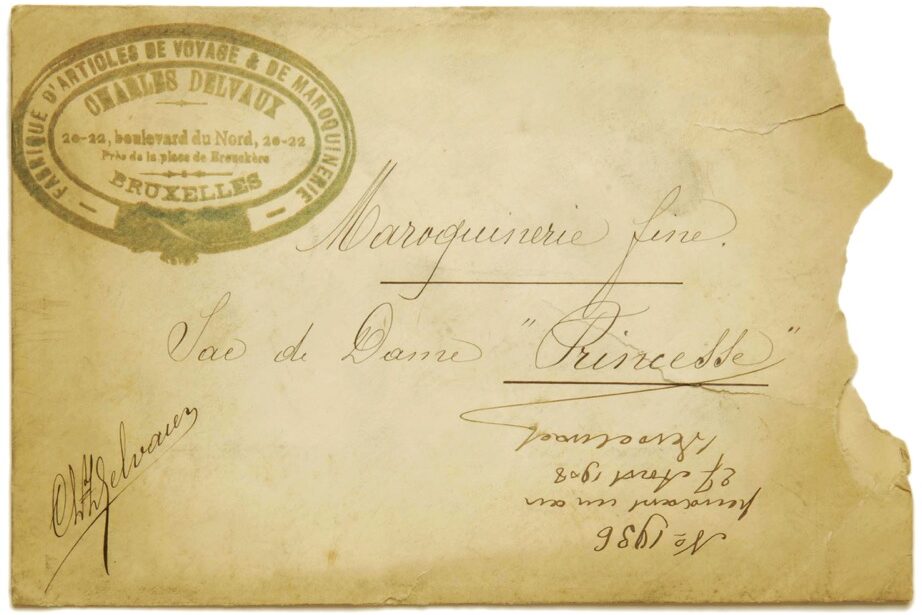 FABRIQUE D'ARTICLES DE VOYAGE & DE MAROQUINERIE
CHARLES DELVAUX
20-22, boulevard du Nord, 20-22
Près de la place de Brouckère
BRUXELLES
Maroquinerie fine.
Sac de Dame "Princesse"
Ch Delvaux
Nº 1936
pendant un an
27 1908